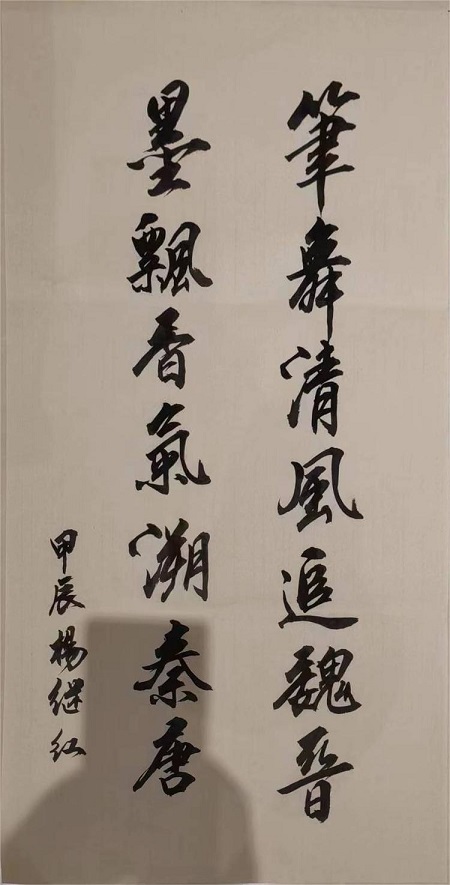 筆舞清風追魏晉
墨飄香氣溯秦唐
甲辰楊继红